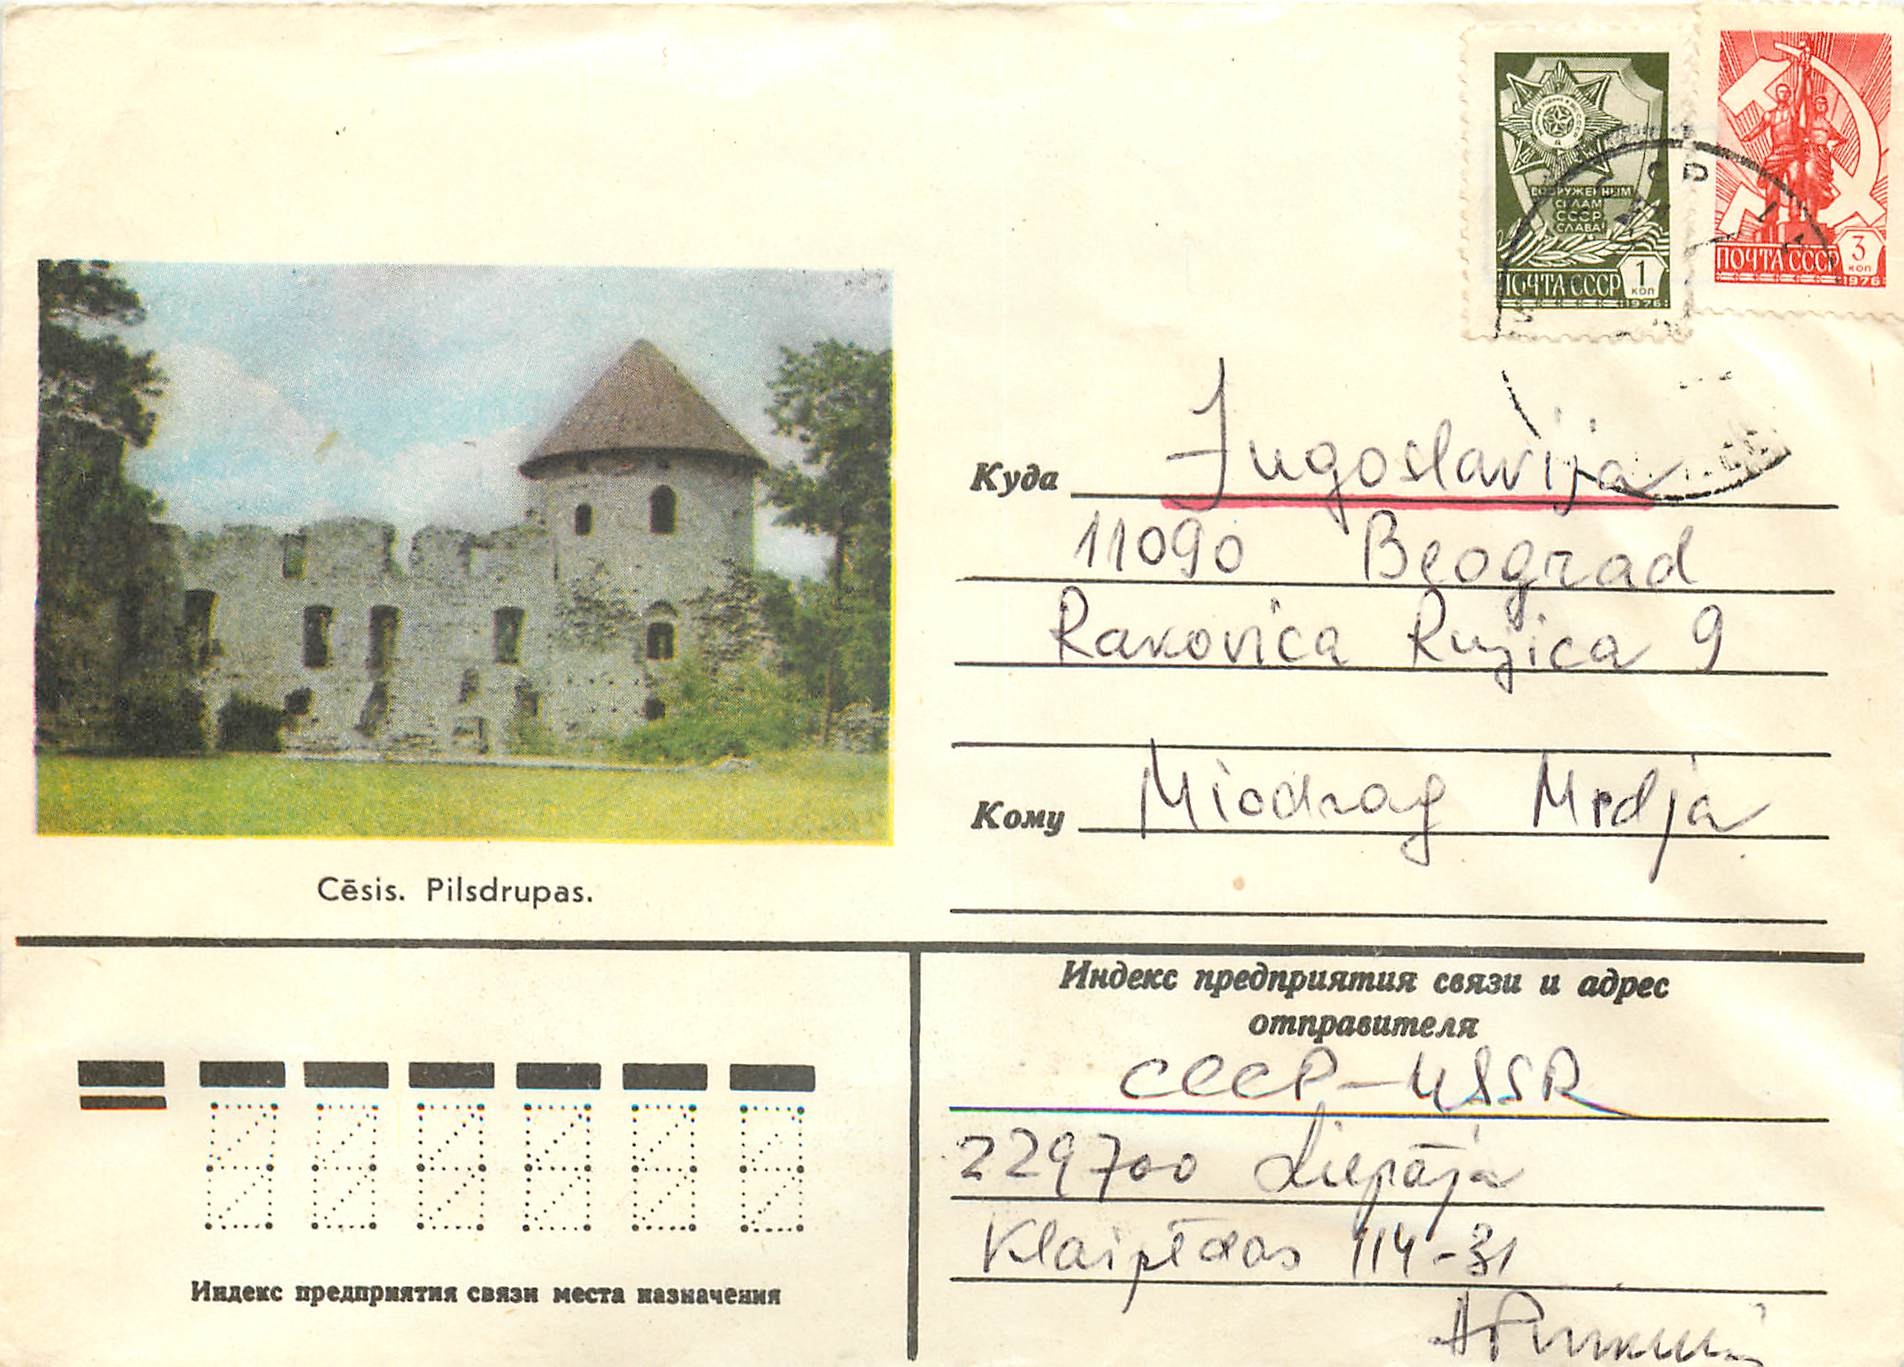 ВООРУЖЕННЫМ
СИЛАМ
СССР
СЛАВА!
ПОЧТА СССР 1
КОП
1976
ПОЧТА СССР 3
КОП
1976
Куда Jugoslavija
11090 Beograd
Rakovica Rujica 9
Кому Miodrag Mrdja
Cēsis. Pilsdrupas.
Индекс предприятия связи и адрес
отправителя
СССР-USSR
229700 Liepāja
Klaipēdas 114-31
Индекс предприятия связи места назначения